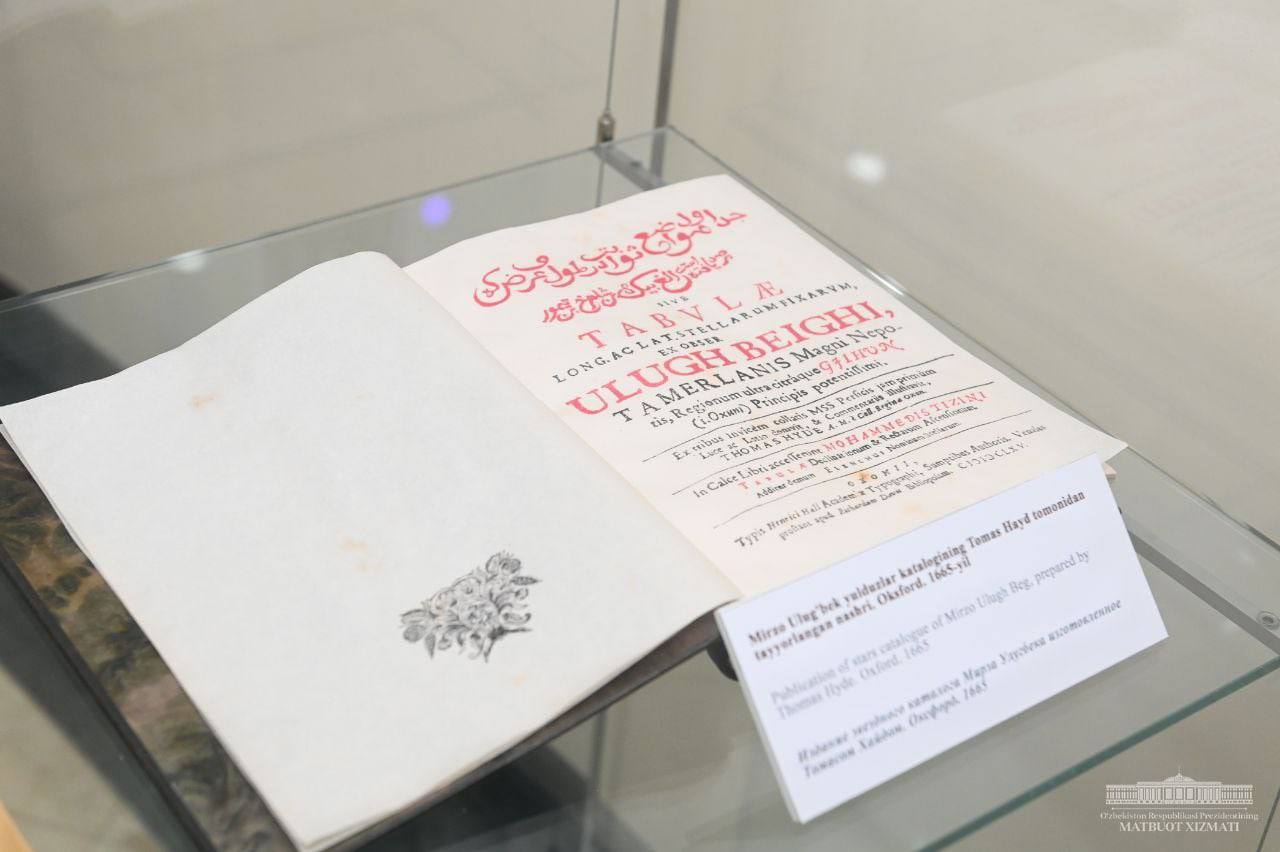 جداول مواضع ثوابت در طول و عرض که
برصد یافته است الغ بیک بن شاهرخ بن تیمور
SIVE
TABVLÆ
LONG. AC LAT. STELLARUM FIXARVM,
EX OBSER
ULUGH BEIGHI,
TAMERLANIS Magni Nepo-
tis, Regionum ultra citráque
(i. Oxum) Principis potentissimi.
Ex tribus invicem collatis MSS Persicis jam primùm
Luce ac Latio donavit, & Commentariis illustravit,
THOMAS HYDE A. M. è Coll. Reginæ Oxon.
In Calce Libri accesserunt MOHAMMEDIS TIZINI
TABULÆ Declinationum & Rectarum Ascensionum.
Additur demum ELENCHUS Nominum Stellarum.
OXONII,
Typis Henrici Hall Academiæ Typographi, Sumptibus Authoris. Veneunt
prostant apud Richardum Davis Bibliopolam. CIƆIƆCLXV.
Mirzo Ulug'bek yulduzlar katalogining Tomas Hayd tomonidan
tayyorlangan nashri. Oksford. 1665-yil
Publication of stars catalogue of Mirzo Ulugh Beg, prepared by
Thomas Hyde. Oxford. 1665
Издание звездного каталога Мирза Улугбека изготовленное
Томасон Хайдон. Оксфорд. 1665
O'zbekiston Respublikasi Prezidentining
MATBUOT XIZMATI